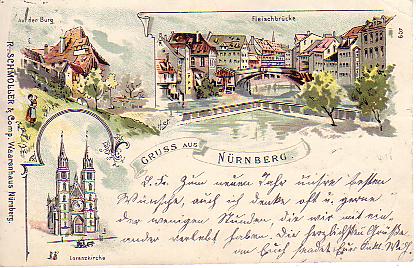 Auf der Burg
Fleischbrücke
607
R. SCHMOLLER & Comp. Waarenhaus Nürnberg.
GRUSS AUS NÜRNBERG.
Lorenzkirche
Zum neuen Jahr unsre besten
Wünsche, auch ich denke oft u. gerne
der wenigen Stunden die wir mit ein-
ander verlebt haben. Die herzlichsten Grüße
an Euch sendet